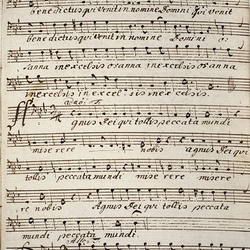 benedictus qui venit in nomine Domini Qui venit
benedictus qui venit in nomine Domini os
anna in excelsis osanna in excelsis osanna
in excelsis in excelsis in excelsis.
Agnus Dei qui tollis peccata mundi
miserere nobis agnus Dei qui
tollis peccata mundi miserere misere
re nobis Agnus Dei qui tollis peccata
mundi peccata mundi.